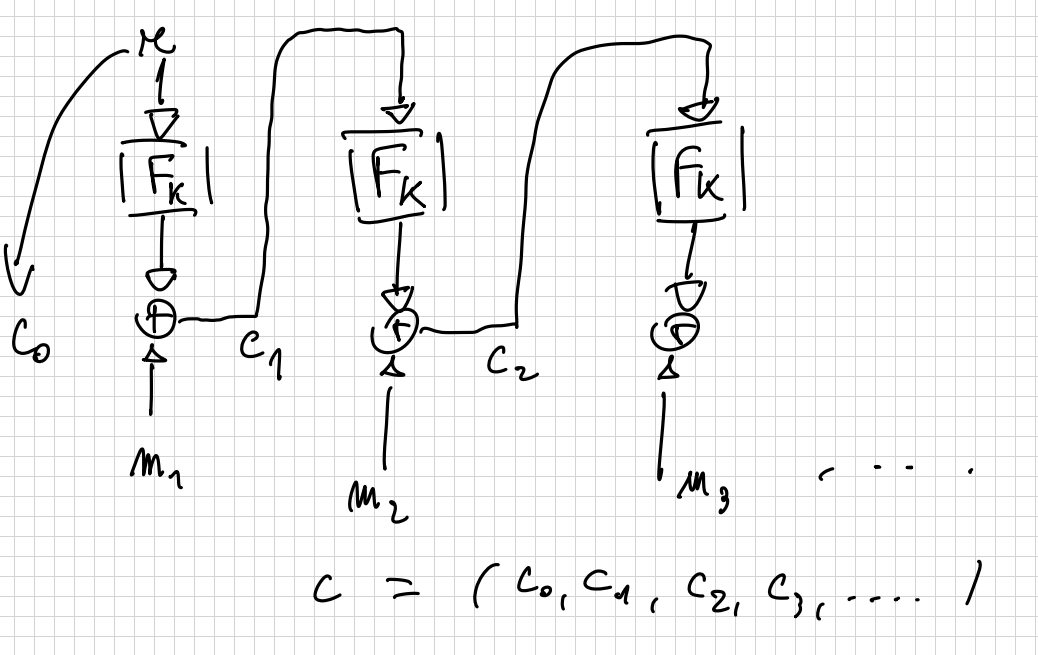 r
F_K F_K F_K
+ + +
C_0 C_1 C_2
m_1 m_2 m_3 ....
C = (C_0, C_1, C_2, C_3, ....)